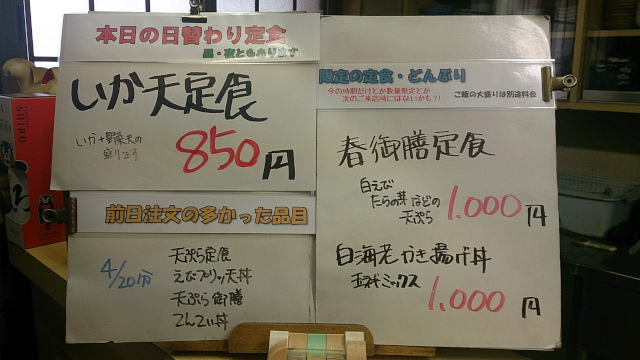 本日の日替わり定食
昼・夜ともあります
いか天定食
いか+野菜天の
盛り
850円
前日注文の多かった品目
4/20分
天ぷら定食
えびプリッ天丼
天ぷら御膳
てんてい丼
限定の定食・どんぶり
今の時期だけとか数量限定とか
次のご来店時にはないかも?!
ご飯の大盛りは別途料金
春御膳定食
白えび
たらの芽 などの
天ぷら
1.000円
白海老かき揚げ丼
玉ネギミックス
1.000円
SHIRO